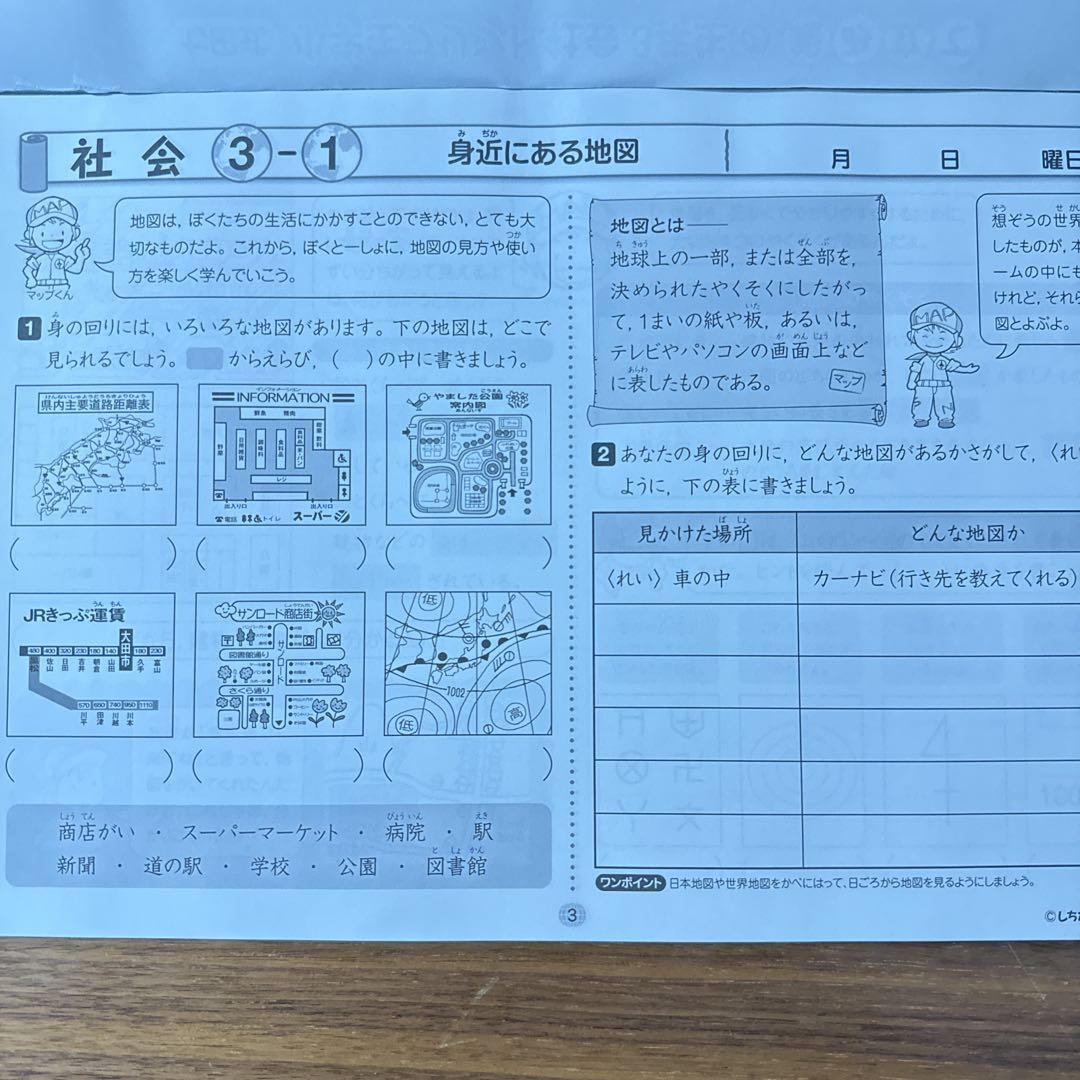 社会 3-1 身近にある地図 月 日 曜日
地図は，ぼくたちの生活にかかすことのできない，とても大
切なものだよ。これから，ぼくと一しょに，地図の見方や使い
方を楽しく学んでいこう。
マップくん
1 身の回りには，いろいろな地図があります。下の地図は，どこで
見られるでしょう。 からえらび，（ ）の中に書きましょう。
県内主要道路距離表
インフォメーション
INFORMATION
鮮魚 精肉
野菜
日用雑貨
調味料
食料品
レジ
出入り口 出入り口
電話 トイレ スーパー
やました公園
案内図
（ ） （ ） （ ）
JRきっぷ運賃
大田市
480 400 320 230 180 140 180 230
570 650 740 950 1110
サンロード商店街
図書館通り
サンロード
さくら通り
低
1002
低
高
（ ） （ ） （ ）
商店がい ・ スーパーマーケット ・ 病院 ・ 駅
新聞 ・ 道の駅 ・ 学校 ・ 公園 ・ 図書館
地図とは――
地球上の一部，または全部を，
決められたやくそくにしたがっ
て，1まいの紙や板，あるいは，
テレビやパソコンの画面上など
に表したものである。
マップ
想ぞうの世界
したものが，本
ームの中にも
けれど，それら
図とよぶよ。
MAP
MAP
2 あなたの身の回りに，どんな地図があるかさがして，〈れい
ように，下の表に書きましょう。
見かけた場所 どんな地図か
〈れい〉車の中 カーナビ（行き先を教えてくれる）
ワンポイント 日本地図や世界地図をかべにはって、日ごろから地図を見るようにしましょう。
3
©しちだ